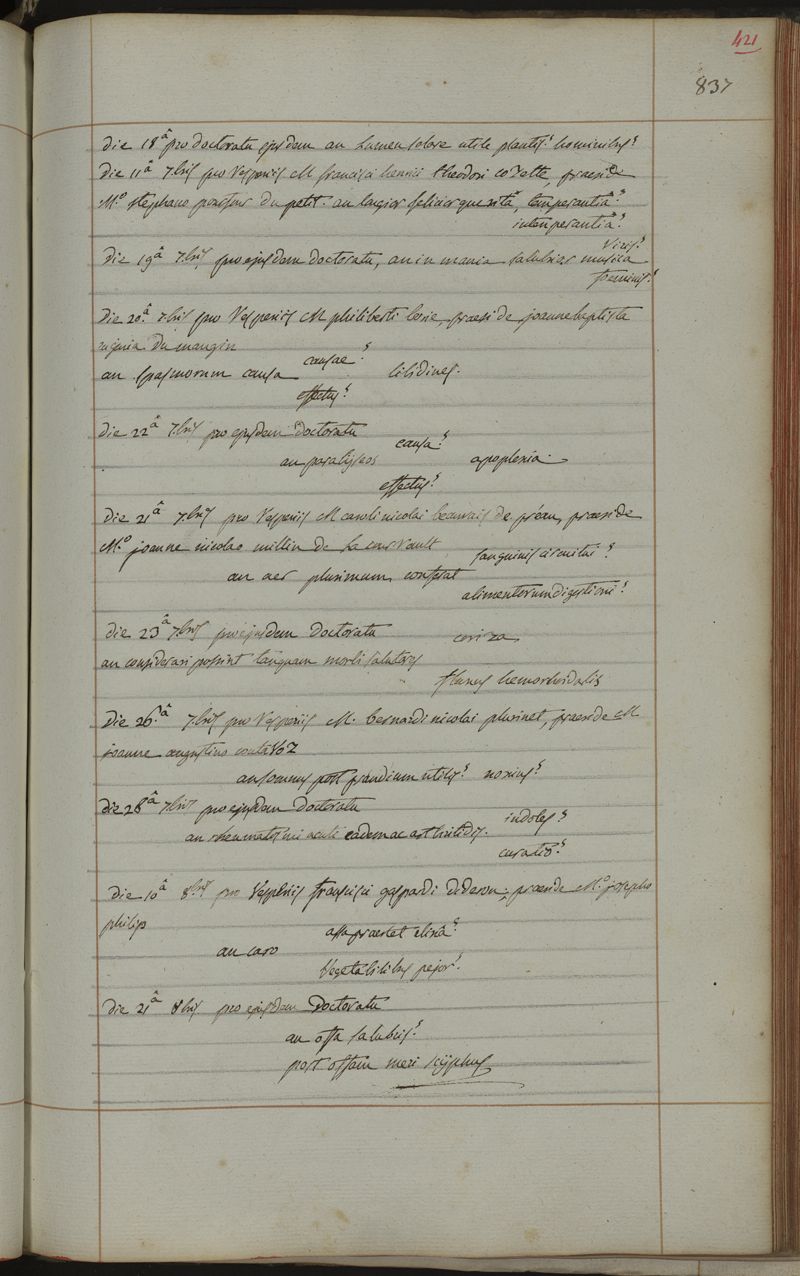 421
837
die 18ª pro doctoratu ejusdem an Lumen solare utile plantis? hominibus?
Die 11ª 7bris pro Vesperiis M francisci henrici theodori cozette, praeside
M.º stephano pourfour du petit. an longior feliciorque vita, temperantiâ?
intemperantiâ?
Die 19ª 7bris pro ejusdem doctoratu, an in mania salubrior musica viris?
foeminis?
Die 20.ª 7bris pro Vesperiis M philiberti borie, praeside joanne baptista
eugenia Dumangin
an spasmorum causa causae? libidines.
effectus?
Die 22ª 7bris pro ejusdem Doctoratu
an paralyseos causa? apoplexia.
effectus?
Die 21ª 7bris pro Vesperiis M caroli nicolai beauvais de préau, praeside
M.º joanne nicolao millin de La courvault
an aer plurimum conferat sanguinis circuitui?
alimentorum digestioni?
Die 23ª 7bris pro ejusdem Doctoratu coriza
an considerari possint tanquam morbi salutares
fluxus hemorhoidalis
Die 26.ª 7bris pro Vesperiis M. bernardi nicolai plurinet, praeside M
joanne augustino coutavoz
an somnus post prandium utilis? noxius?
Die 28ª 7bris pro ejusdem Doctoratu
an rheumatismi acuti eadem ac arthritidis. indoles?
curatio?
Die 10ª 8bris pro Vesperiis francisci gaspardi dideron, praeside M.º josepho
philip
an caro assa praestet elixâ?
vegetabilibus pejor?
Die 21ª 8bris pro ejusdem Doctoratu
an offa salubris?
post offam meri scyphus